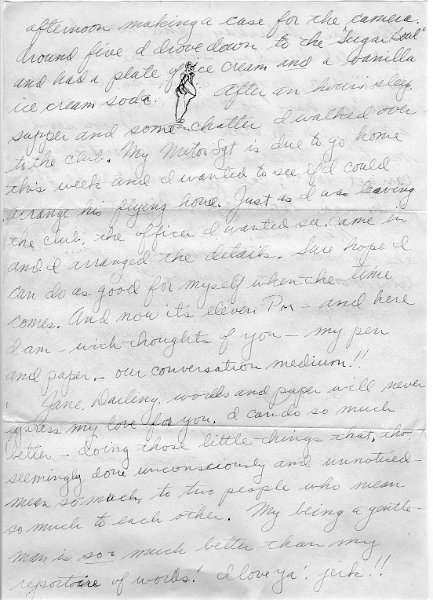 afternoon making a case for the camera.
Around five I drove down to the "Sugar Bowl"
and had a plate of ice cream and a vanilla
ice cream soda. After an hour's sleep,
supper and some chatter I walked over
to the club. My Motor Sgt is due to go home
this week and I wanted to see if I could
arrange his flying home. Just as I was leaving
the club, the officer I wanted see, came in
and I arranged the details. Sure hope I
can do as good for myself when the time
comes. And now it's eleven PM - and here
I am - with thoughts of you - my pen
and paper - our conversation medium!!
Jane, Darling, words and paper will never
express my love for you. I can do so much
better - doing those little things that, tho
seemingly done unconsciously and unnoticed -
mean so much, to two people who mean
so much to each other. My being a gentle-
man is so - much better than my
repertoire of words! I love ya', jerk!!